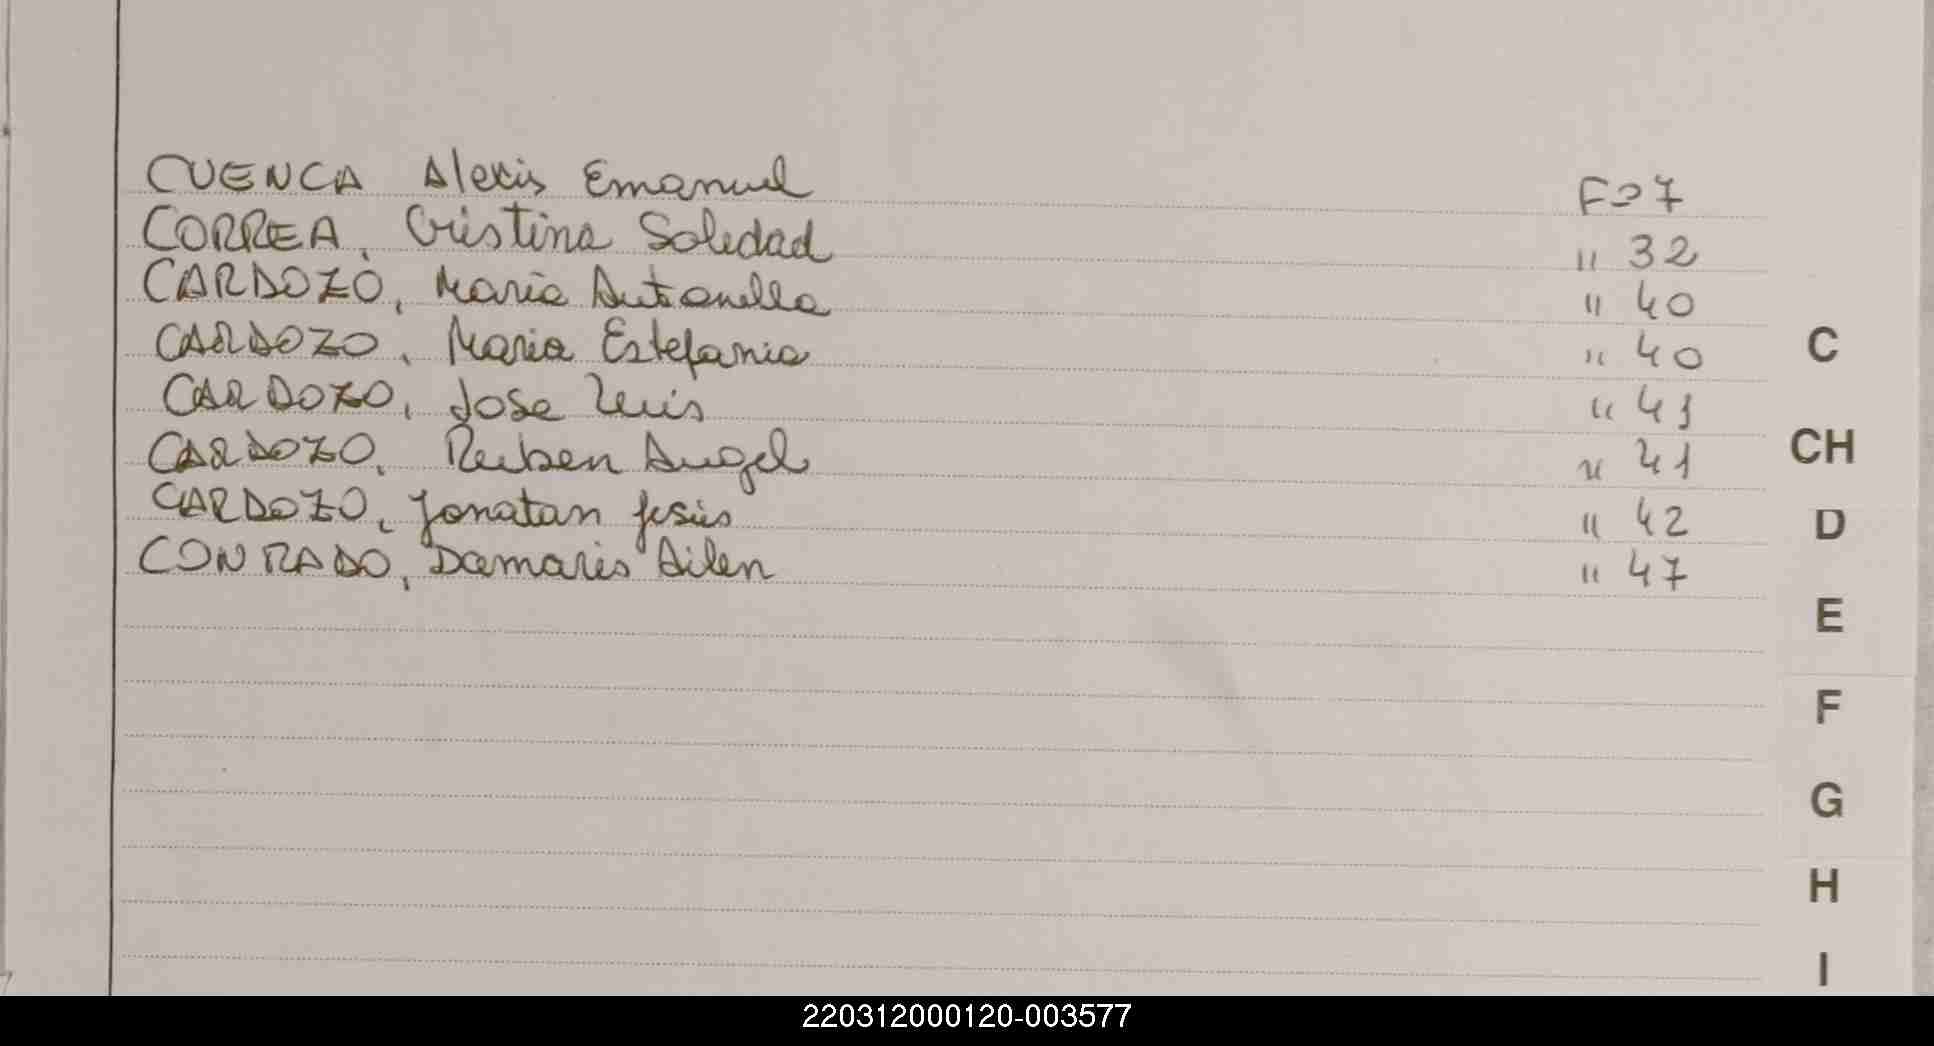 CUENCA Alexis Emanuel F=7
CORREA, Cristina Soledad " 32
CARDOZO, Maria Antonella " 40
CARDOZO, Maria Estefania " 40
C
CARDOZO, Jose Luis " 41
CARDOZO, Ruben Angel " 41
CH
CARDOZO, Jonatan Jesús " 42
D
CONRADO, Damaris Ailen " 47
E
F
G
H
I
220312000120-003577